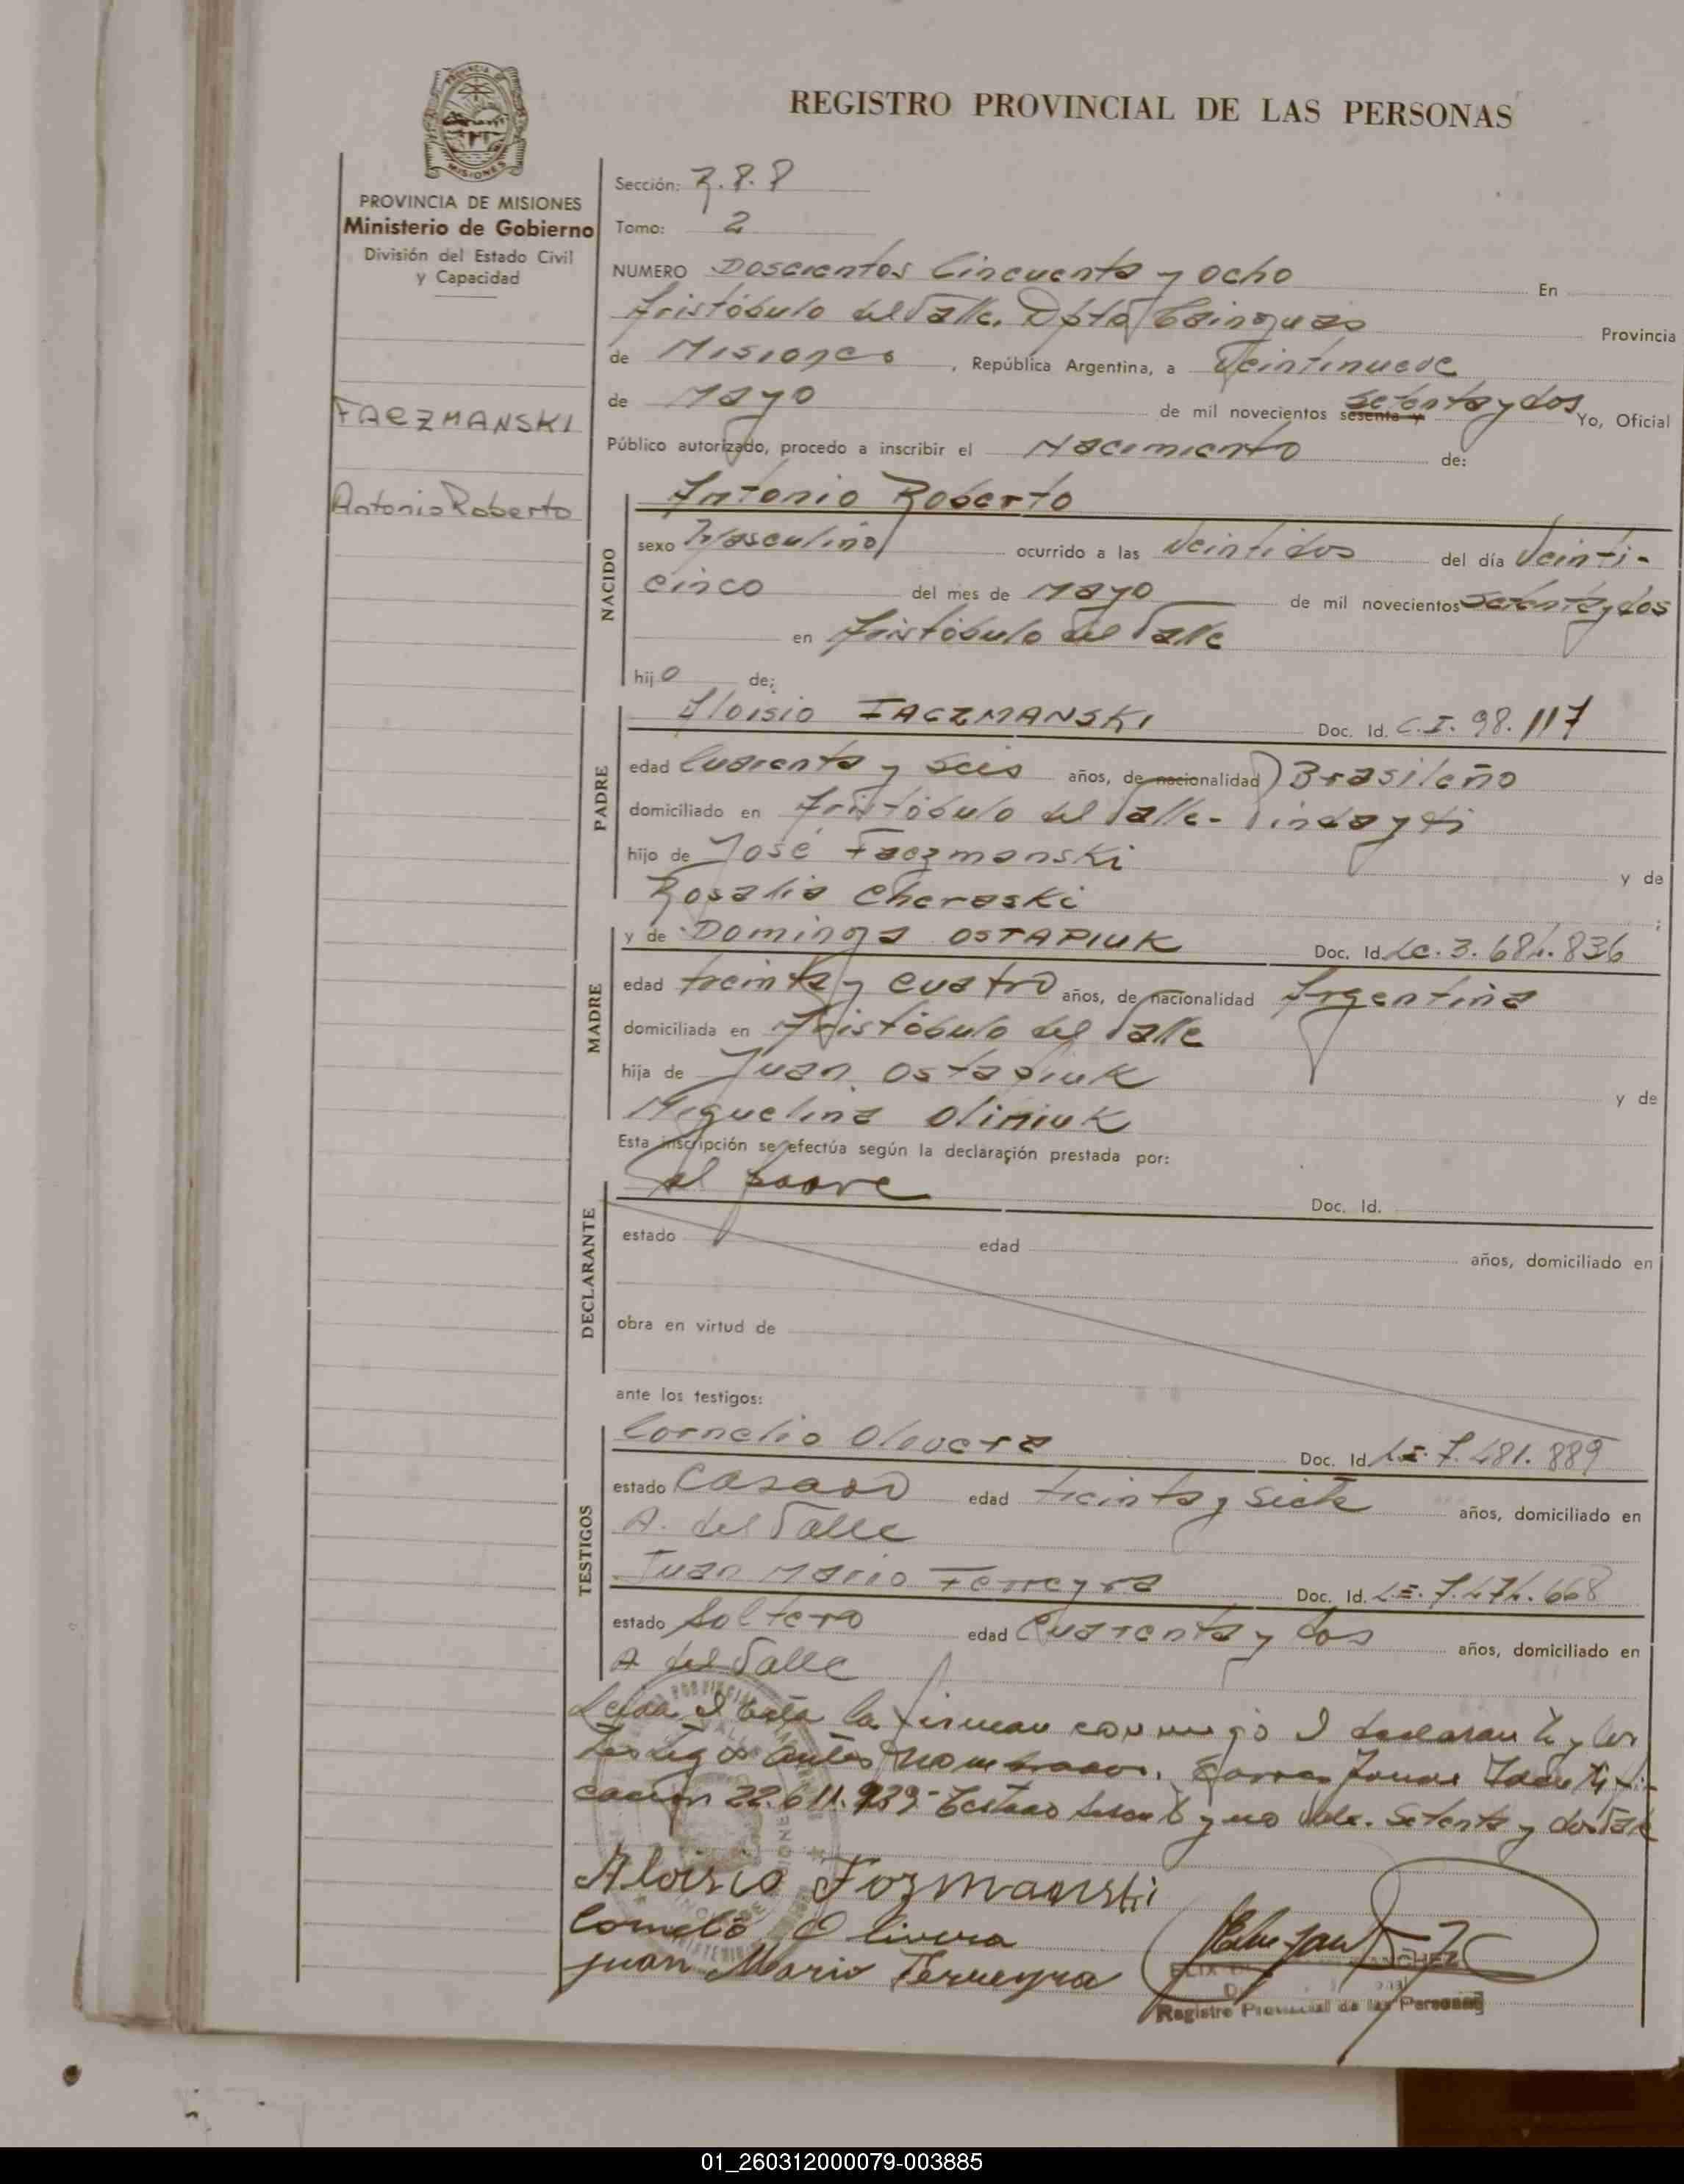 REGISTRO PROVINCIAL DE LAS PERSONAS
MISIONES
PROVINCIA DE MISIONES
Ministerio de Gobierno
División del Estado Civil
y Capacidad
FACZMANSKI
Antonio Roberto
Sección: R.P.P
Tomo: 2
NUMERO Doscientos Cincuenta y ocho En
Aristóbulo del Valle, Dpto Cainguas Provincia
de Misiones, República Argentina, a Veintinueve
de Mayo de mil novecientos sesenta y setenta y dos Yo, Oficial
Público autorizado, procedo a inscribir el Nacimiento de:
NACIDO
Antonio Roberto
sexo Masculino ocurrido a las Veintidos del día Veinti-
cinco del mes de Mayo de mil novecientos setenta y dos
en Aristóbulo del Valle
hijo de;
PADRE
Aloisio FACZMANSKI Doc. Id. C.I. 98.117
edad Cuarenta y seis años, de nacionalidad Brasileño
domiciliado en Aristóbulo del Valle- Pindayti
hijo de José Faczmanski y de
Rosalia Cheraski ;
MADRE
y de Dominga OSTAPIUK Doc. Id. Lc. 3.684.836
edad treinta y cuatro años, de nacionalidad Argentina
domiciliada en Aristóbulo del Valle
hija de Juan Ostapiuk y de
Miguelina Oliniuk
Esta inscripción se efectúa según la declaración prestada por:
DECLARANTE
el padre Doc. Id.
estado edad años, domiciliado en
obra en virtud de
ante los testigos:
TESTIGOS
Cornelio Olivera Doc. Id. LE. 7.481.889
estado Casado edad treinta y siete años, domiciliado en
A. del Valle
Juan Mario Ferreyra Doc. Id. LE. 7.474.668
estado Soltero edad Cuarenta y dos años, domiciliado en
A del Valle
Leida el acta la firman conmigo el declarante y los
testigos antes nombrados. Identifi-
cación 22.611.939- Testado sesenta y no vale. Setenta y dos Vale
Aloisio Fozmanski
Cornelio Olivera
Juan Mario Ferreyra
Registro Provincial de las Personas
01_260312000079-003885